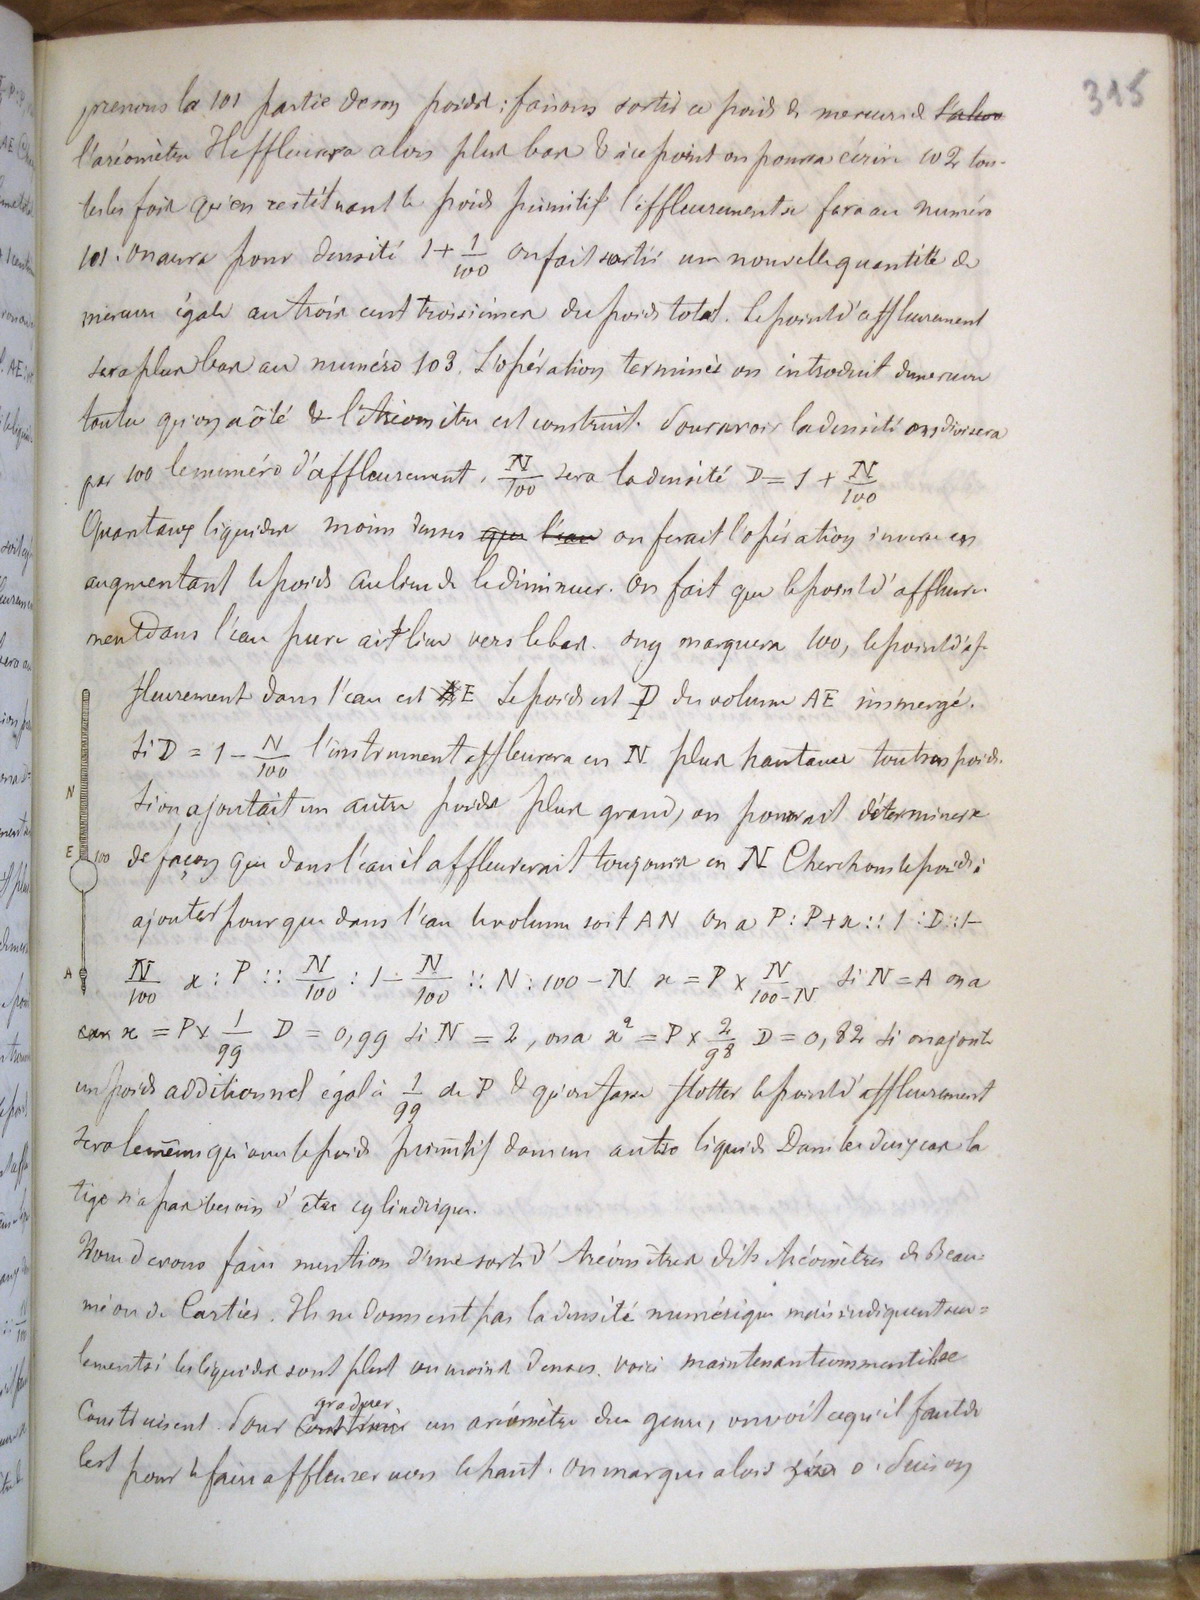 315
prenons la 101 partie de son poids : faisons sortir ce poids de mercure de
l'aréomètre Il affleurera alors plus bas & à ce point on pourra écrire 102 tou-
tes les fois qu'en restituant le poids primitif l'affleurement se fera au numéro
101. on aura pour densité 1 + 1/100 on fait sortir une nouvelle quantité de
mercure égale au trois cent troisièmes du poids total. le point d'affleurement
sera plus bas au numéro 103. L'opération terminée on introduit du mercure
tout ce qu'on a ôté & l'Aréomètre est construit. Pour avoir la densité on divisera
par 100 le numéro d'affleurement. N/100 sera la densité D = 1 + N/100
Quant aux liquides moins denses que l'eau on ferait l'opération inverse en
augmentant le poids au lieu de le diminuer. On fait que le point d'affleure-
ment dans l'eau pure ait lieu vers le bas. on y marquera 100, le point d'af-
fleurement dans l'eau est E Le poids est P du volume AE immergé.
Si D = 1 - N/100 l'instrument affleurera en N plus haut avec tout son poids.
Si on ajoutait un autre poids plus grand, on pourrait déterminer
de façon que dans l'eau il affleurerait toujours en N Cherchons le poids à
N
E 100
A
ajouter pour que dans l'eau le volume soit AN On a P : P + x :: 1 : D :: 1 -
N/100 x : P :: N/100 : 1 - N/100 :: N : 100 - N x = P × N/(100 - N) Si N = A on a
x = P × 1/99 D = 0,99 Si N = 2, on a x² = P × 2/98 D = 0,82 Si on ajoute
un poids additionnel égal à 1/99 de P & qu'on fasse flotter le point d'affleurement
sera le même qu'avec le poids primitif dans un autre liquide Dans les deux cas la
tige n'a pas besoin d'être cylindrique.
Nous devons faire mention d'une sorte d'Aréomètres dits Aréomètres de Beau-
mé ou de Cartier. Ils ne donnent pas la densité numérique mais indiquent seu-
lement si les liquides sont plus ou moins denses. voici maintenant comment ils se
graduer
construisent. Pour construire un aréomètre du genre, on voit ce qu'il faut de
lest pour le faire affleurer vers le haut. On marque alors zéro 0. Puis on